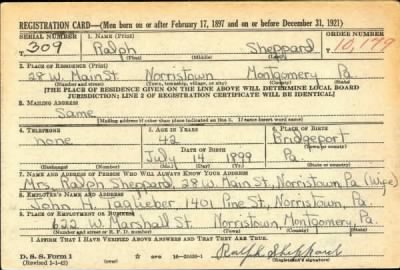 REGISTRATION CARD—(Men born on or after February 17, 1897 and on or before December 31, 1921)
SERIAL NUMBER 1. NAME (Print) ORDER NUMBER
309 Ralph Sheppard 10,179
(First) (Middle) (Last)
2. PLACE OF RESIDENCE (Print)
28 W. Main St. Norristown Montgomery Pa.
(Number and street) (Town, township, village, or city) (County) (State)
[THE PLACE OF RESIDENCE GIVEN ON THE LINE ABOVE WILL DETERMINE LOCAL BOARD
JURISDICTION; LINE 2 OF REGISTRATION CERTIFICATE WILL BE IDENTICAL]
3. MAILING ADDRESS
Same
[Mailing address if other than place indicated on line 2. If same insert word same]
4. TELEPHONE 5. AGE IN YEARS 6. PLACE OF BIRTH
none 42 Bridgeport
DATE OF BIRTH (Town or county)
July 14 1899 Pa.
(Exchange) (Number) (Mo.) (Day) (Yr.) (State or country)
7. NAME AND ADDRESS OF PERSON WHO WILL ALWAYS KNOW YOUR ADDRESS
Mrs. Ralph Sheppard 28 W. Main St., Norristown, Pa (Wife)
8. EMPLOYER'S NAME AND ADDRESS
John H. 1401 Pine St., Norristown, Pa.
9. PLACE OF EMPLOYMENT OR BUSINESS
622 W. Marshall St. Norristown, Montgomery, Pa.
(Number and street or R. F. D. number) (Town) (County) (State)
I AFFIRM THAT I HAVE VERIFIED ABOVE ANSWERS AND THAT THEY ARE TRUE.
D. S. S. Form 1
(Revised 1-1-42) (over) Ralph Sheppard